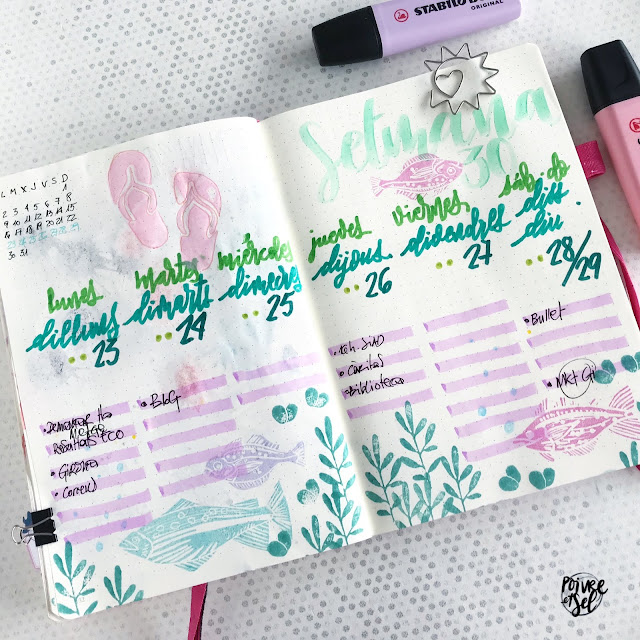 STABILO BOSS
ORIGINAL
Setmana
30
L M X J V S D
1
2 3 4 5 6 7 8
9 10 11 12 13 14 15
16 17 18 19 20 21 22
23 24 25 26 27 28 29
30 31
lunes
dilluns
23
martes
dimarts
24
miércoles
dimecres
25
jueves
dijous
26
viernes
divendres
27
sáb. do
diss
diu.
28/29
• BloG
• Correus
• Caritas
• Biblioteca
• Bullet
Poivre
et
Sel